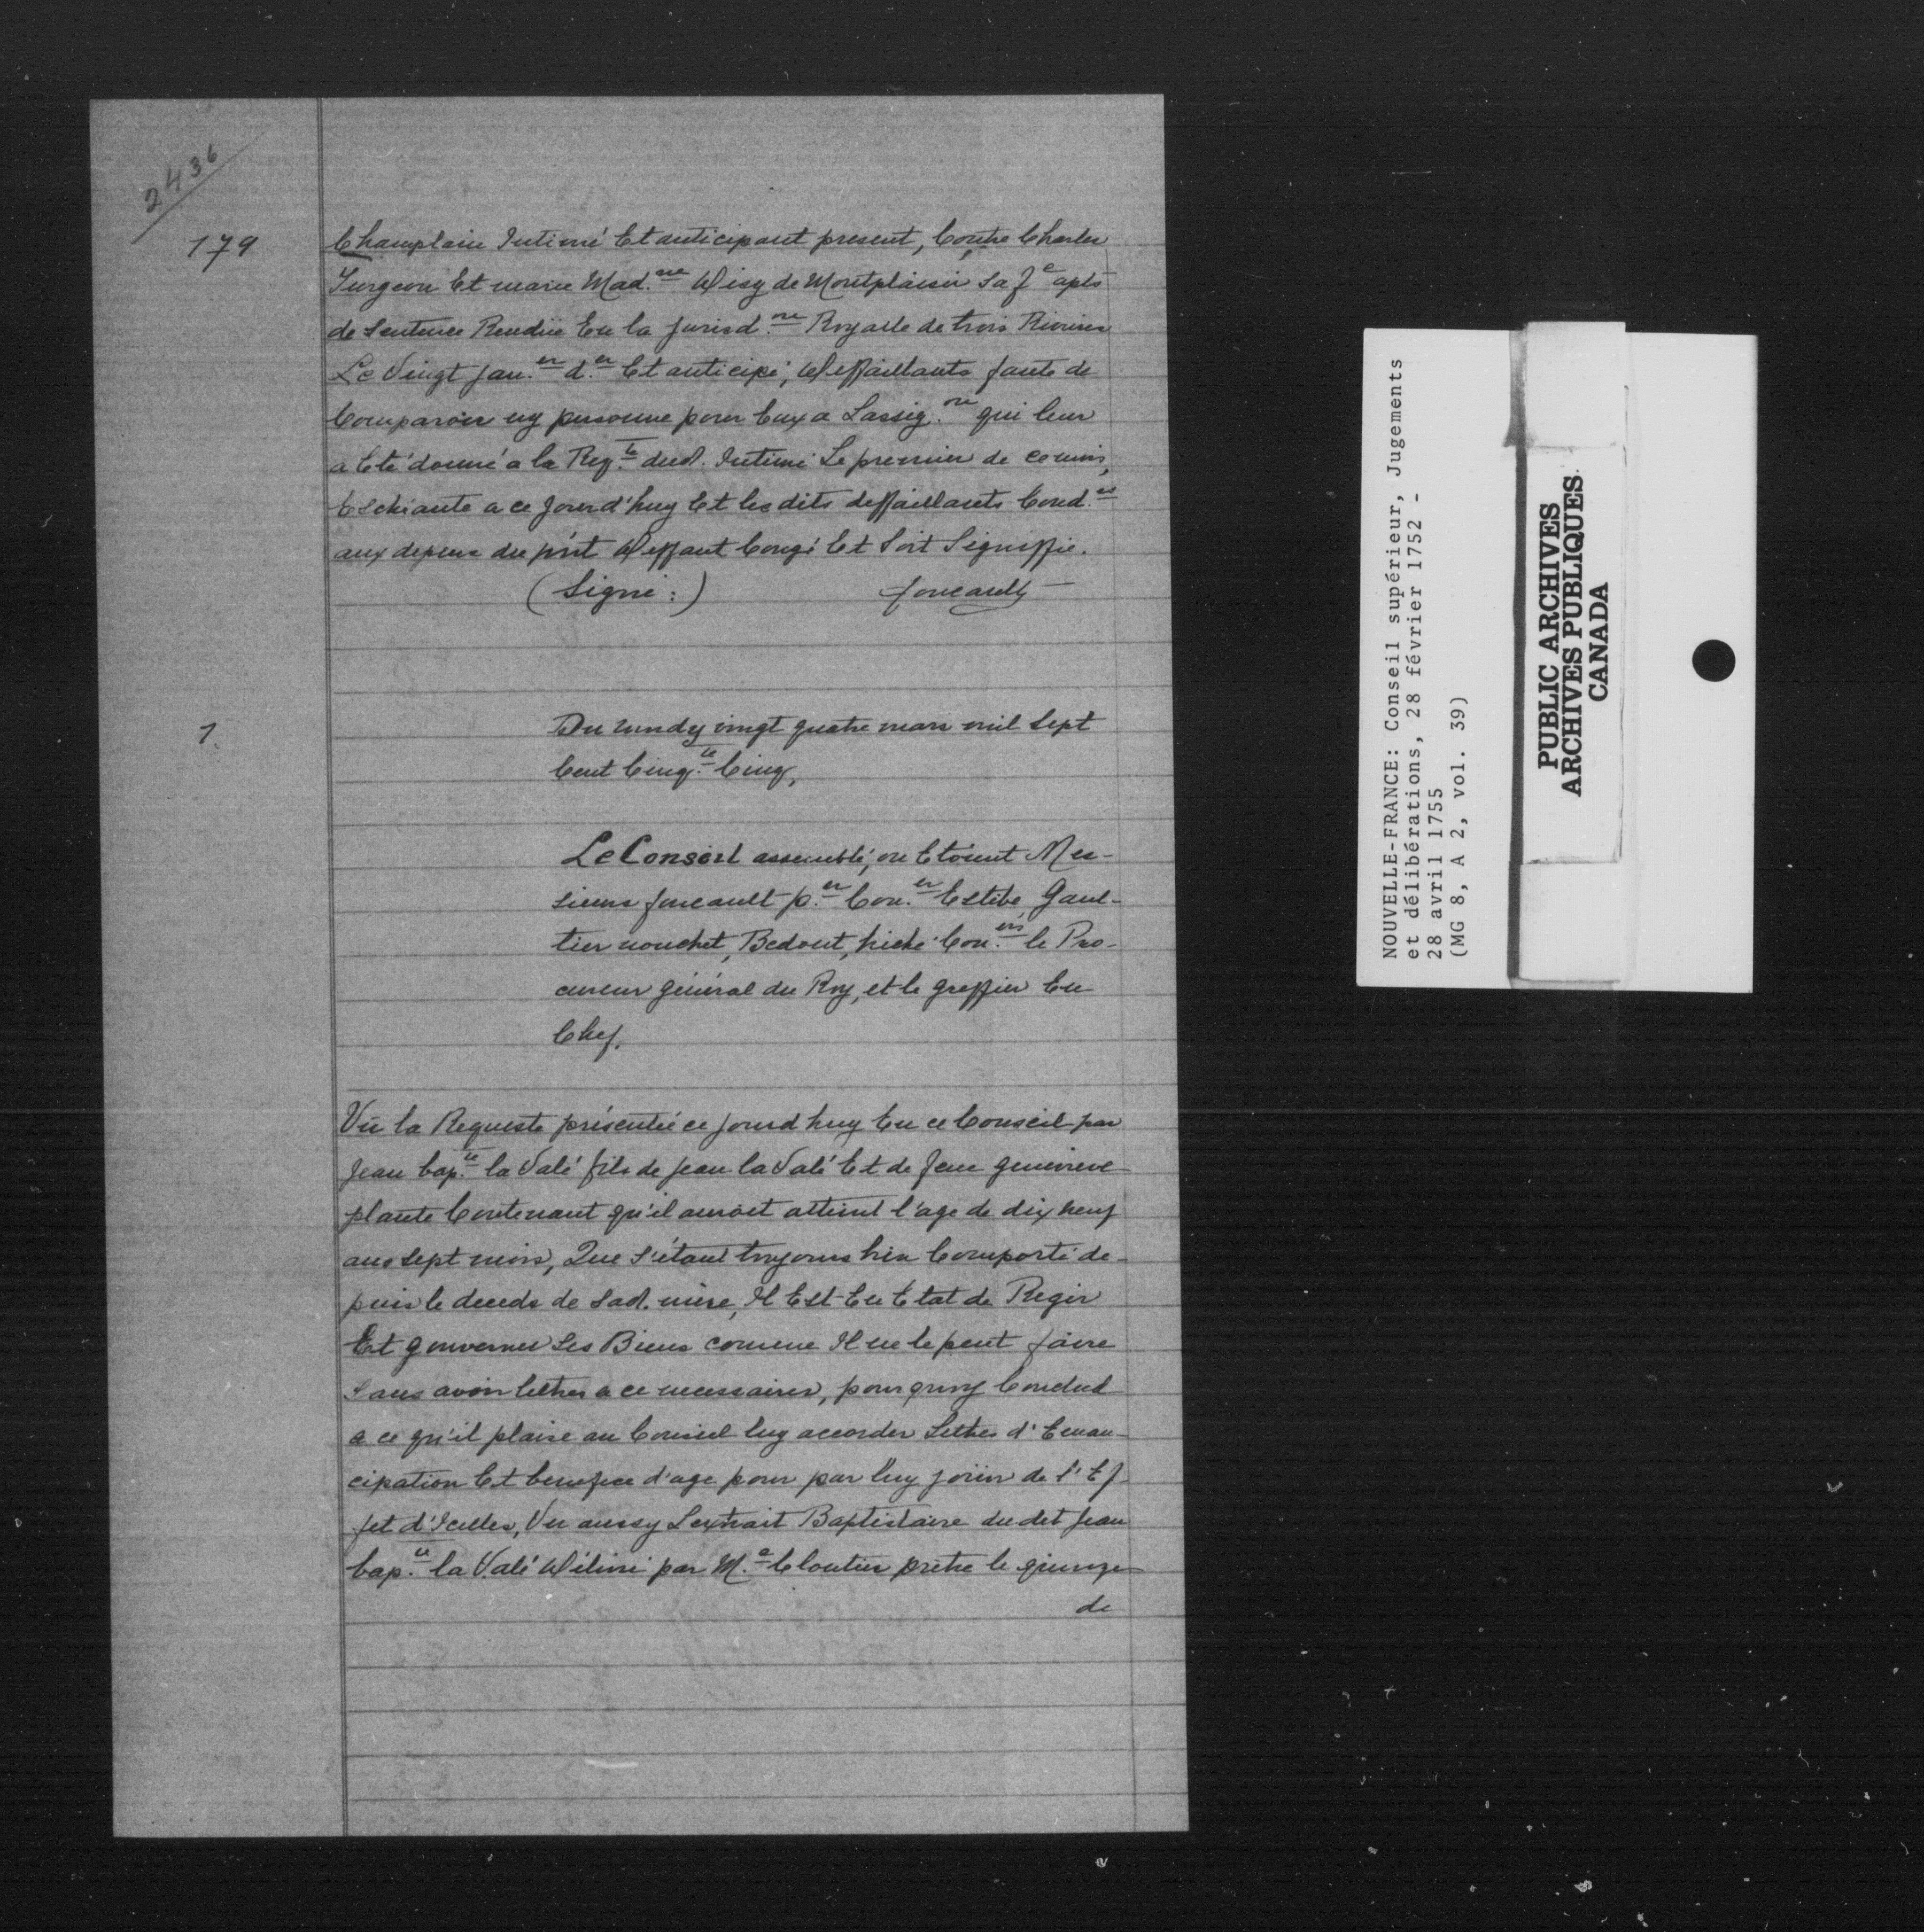 2436
179
Champlain Intimé Et anticipant present, Contre Charles
Turgeon Et marie Mad.ne Disy de Montplaisir sa f.e apts
de Sentence Rendüe En la Jurisd.on Royalle de trois Rivieres
Le Vingt jan.er d.er Et anticipé, Deffaillants faute de
Comparoir ny personne pour Eux a Lassig.on qui leur
a Eté donné a la Req.te dud. Intimé Le premier de ce mois,
Eschéante a ce jourd'huy Et les dits deffaillants Cond.es
aux depens du pnt Deffaut Congé Et Soit Signiffié.
(Signé:) foucault
1.
Du Lundy vingt quatre mars mil Sept
Cent Cinq.te Cinq,
Le Conseil assemblé, ou Etoient Mes-
sieurs foucault p.er Con.er Estèbe, Gaul-
tier nouchet, Bedout, hiché Con.ers le Pro-
cureur général du Roy, et le greffier En
Chef.
Vü la Requeste présentée ce jourd huy En ce Conseil par
Jean bap.te la Valé fils de jean la Valé Et de feue genevieve
plante Contenant qu'il auroit atteint l'age de dix neuf
ans Sept mois, Que S'étant toujours bien Comporté de-
puis le deceds de Sad. mère, Il Est En Etat de Regir
Et gouverner Ses Biens comme Il ne le peut faire
Sans avoir lettres a ce necessaires, pourquoy Conclud
a ce qu'il plaise au Conseil luy accorder Lettres d'Eman-
cipation Et benefice d'age pour par luy joüir de l'Ef-
fet d'Icelles, Vu aussy Lextrait Baptistaire dudit Jean
bap.te la Valé Délivré par M.e Cloutier prêtre le quinze
de
NOUVELLE-FRANCE: Conseil supérieur, Jugements
et délibérations, 28 février 1752 -
28 avril 1755
(MG 8, A 2, vol. 39)
PUBLIC ARCHIVES
ARCHIVES PUBLIQUES
CANADA